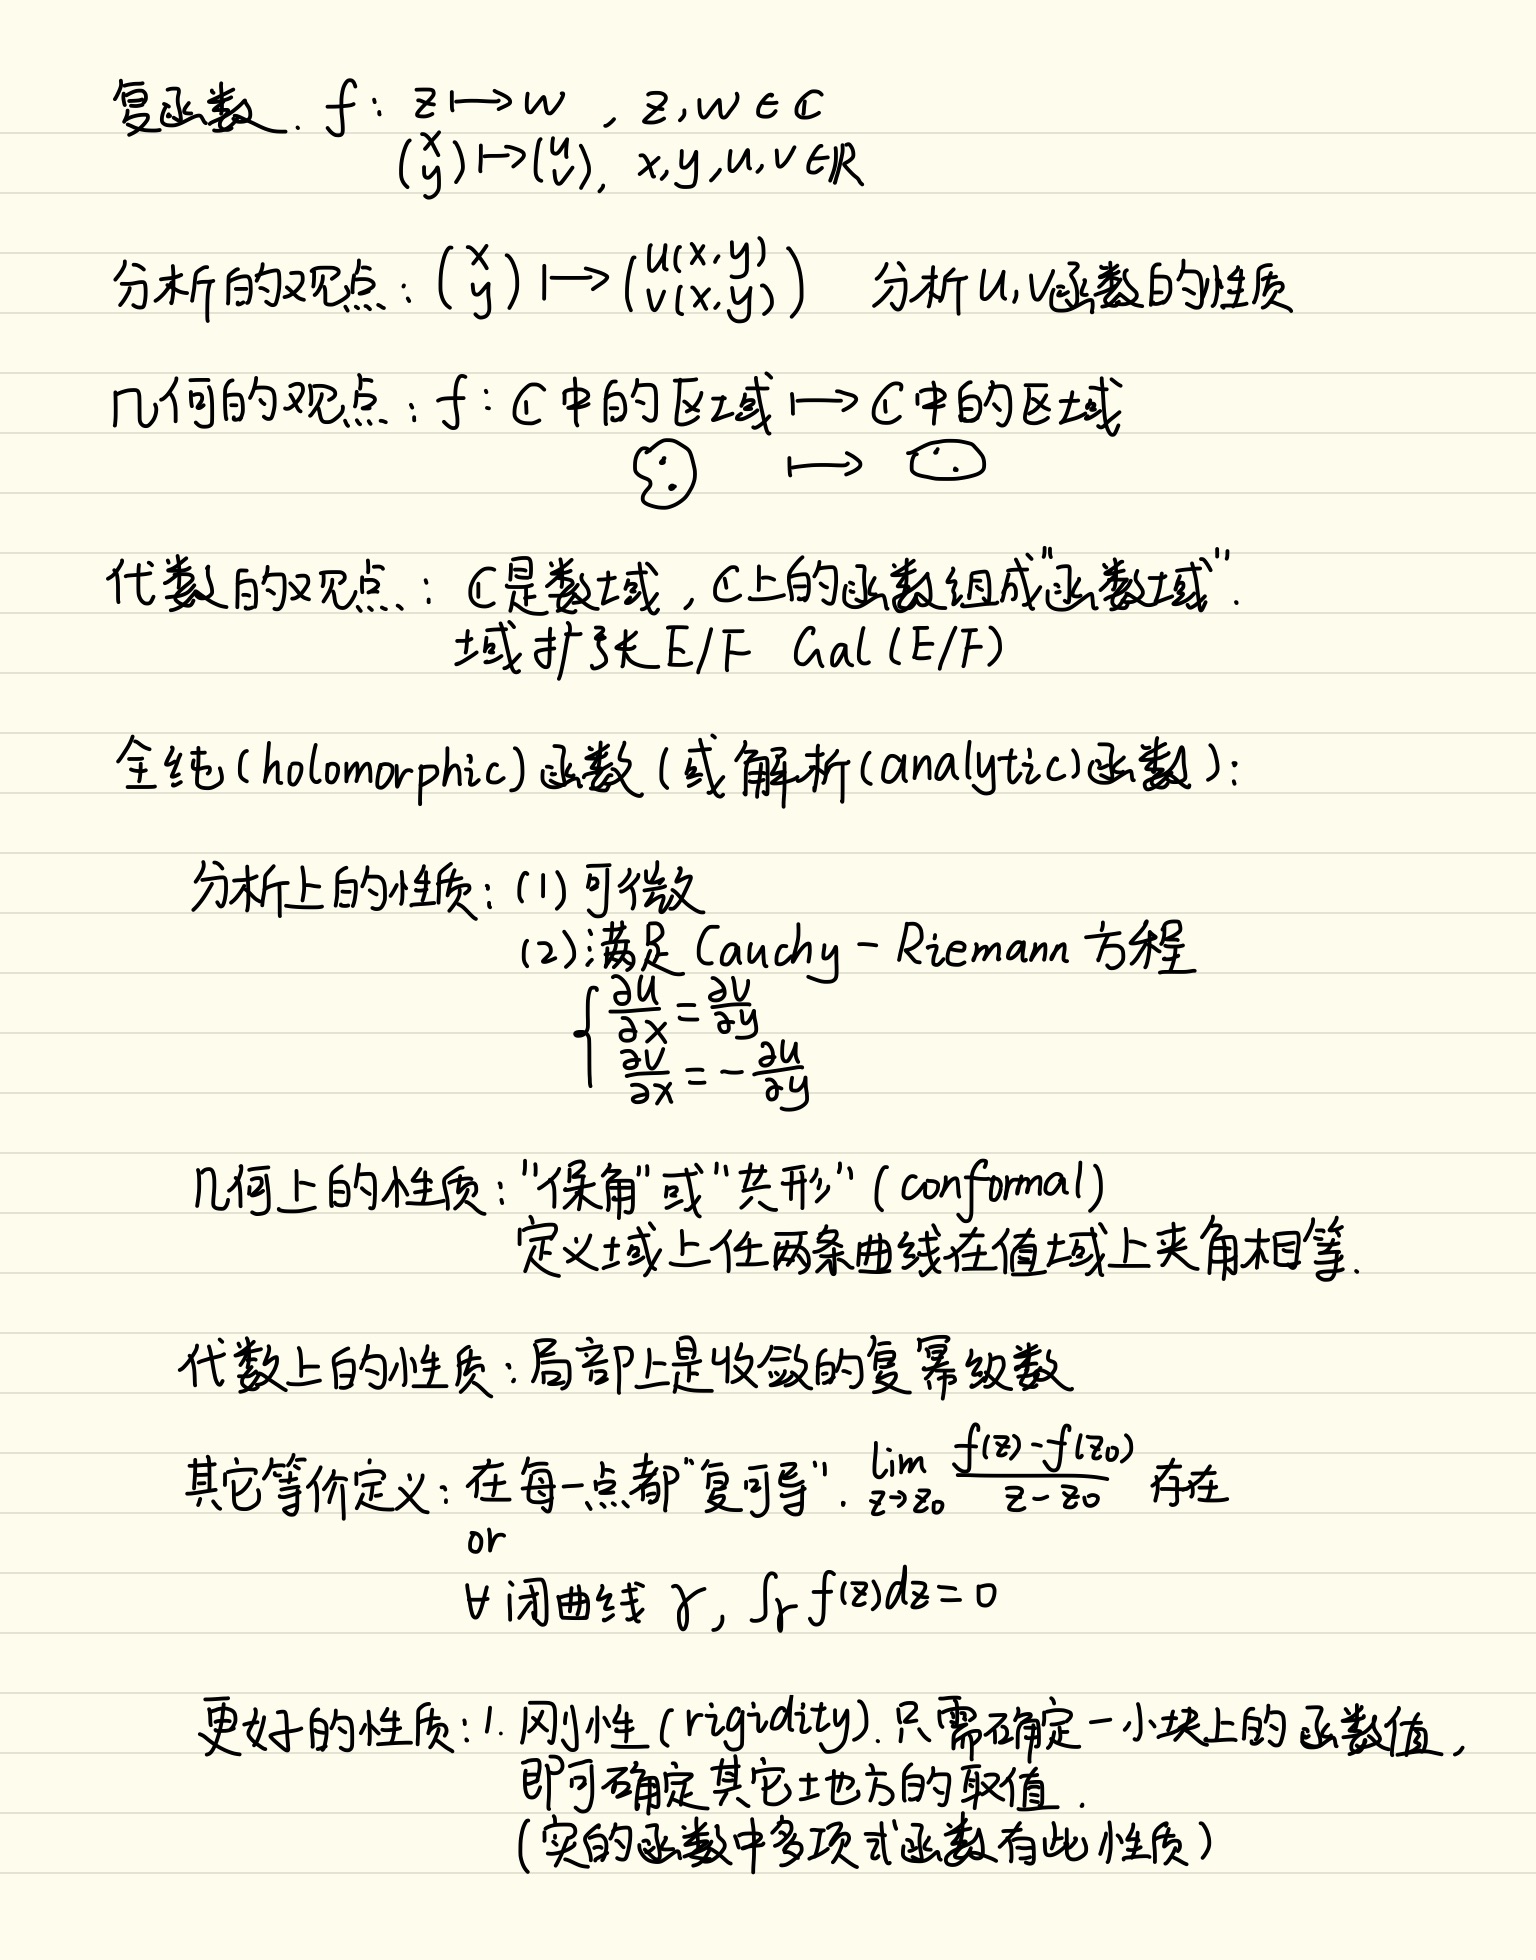 复函数. f: z ↦ w , z, w ∈ ℂ
(x y) ↦ (u v), x, y, u, v ∈ ℝ
分析的观点: (x y) ↦ (u(x,y) v(x,y)) 分析u,v函数的性质
几何的观点: f: ℂ中的区域 ↦ ℂ中的区域
↦
代数的观点: ℂ是数域, ℂ上的函数组成"函数域".
域扩张 E/F Gal(E/F)
全纯(holomorphic)函数(或解析(analytic)函数):
分析上的性质: (1) 可微
(2) 满足 Cauchy-Riemann 方程
{ ∂u/∂x = ∂v/∂y
∂v/∂x = -∂u/∂y
几何上的性质: "保角"或"共形"(conformal)
定义域上任两条曲线在值域上夹角相等.
代数上的性质: 局部上是收敛的复幂级数
其它等价定义: 在每一点都"复可导". lim z→z₀ (f(z)-f(z₀))/(z-z₀) 存在
or
∀闭曲线 γ, ∫γ f(z)dz=0
更好的性质: 1. 刚性(rigidity). 只需确定一小块上的函数值,
即可确定其它地方的取值.
(实的函数中多项式函数有此性质)